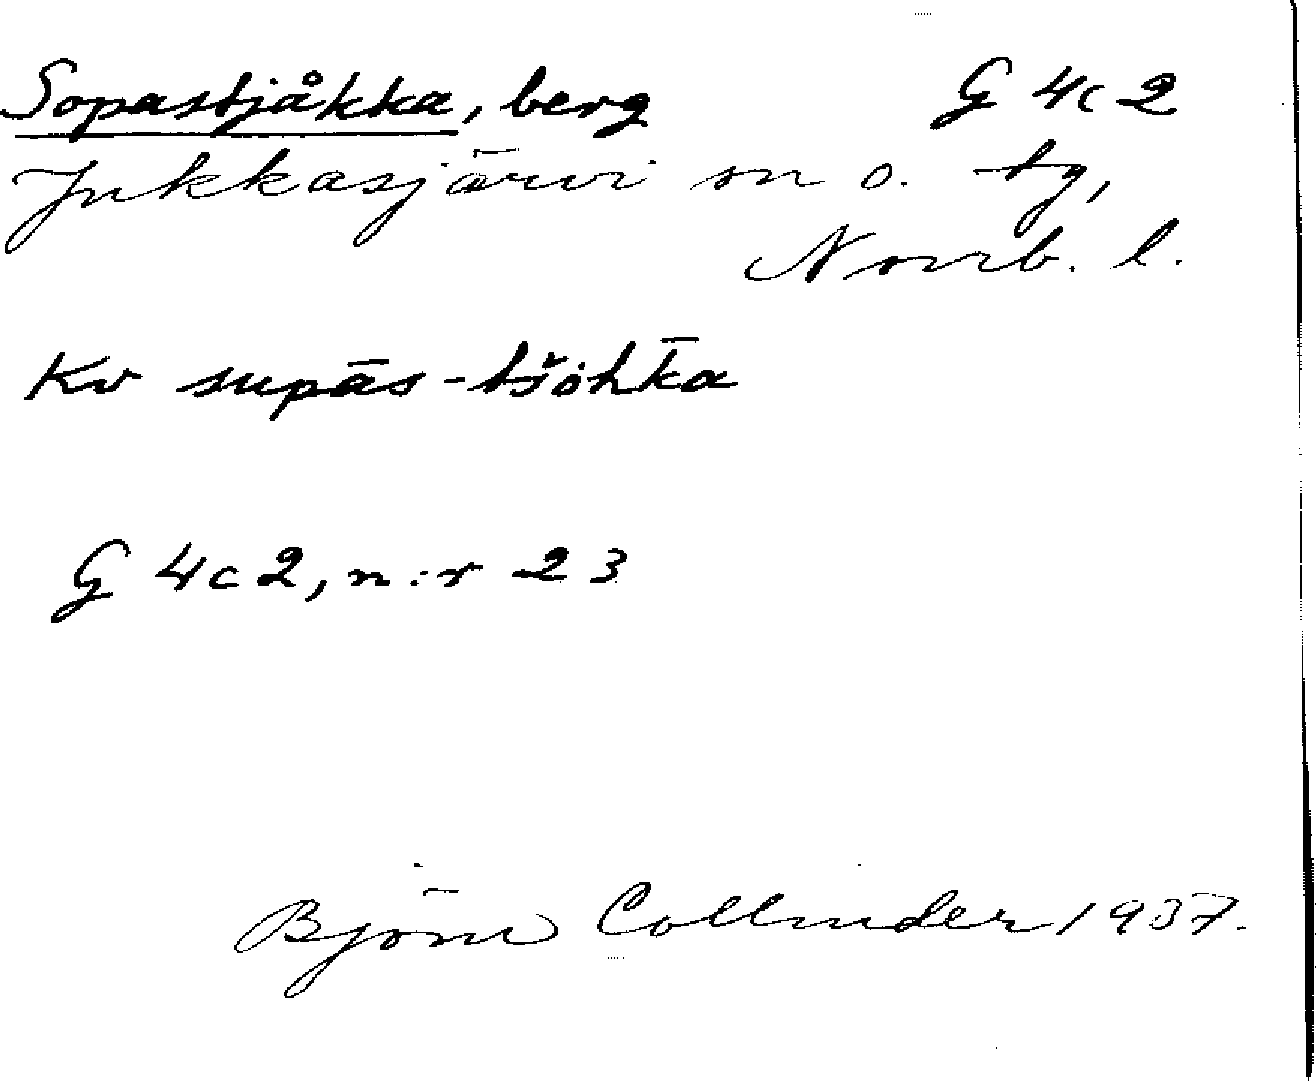 Sopastjåkka, berg G 4c 2
Jukkasjärvi sn o. tg,
Norrb. l.
Kv supās-tšȯhk̄a
G 4c2, n:r 23
Björn Collinder 1937.